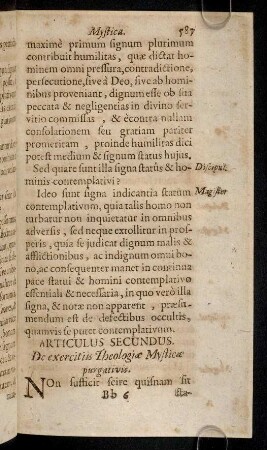 Mystica. 587
maximè primum signum plurimum
contribuit humilitas, quæ dictat ho-
minem omni pressura, contradictione,
persecutione, sive à Deo, sive ab homi-
nibus proveniant, dignum esse ob sua
peccata & negligencias in divino ser-
vitio commissas, & econtra nullam
consolationem seu gratiam pariter
promeritam, proinde humilitas dici
potest medium & signum status hujus.
Sed quare sunt illa signa status & ho-
minis contemplativi?
Discipul.
Ideo sunt signa indicantia statum
contemplativum, quia talis homo non
turbatur non inquietatur in omnibus
adversis, sed neque extollitur in pros-
peris, quia se judicat dignum malis &
afflictionibus, ac indignum omni bo-
no, ac consequenter manet in continua
pace statui & homini contemplativo
essentiali & necessaria, in quo verò illa
signa, & notæ non apparent, præsu-
mendum est de defectibus occultis,
quamvis se putet contemplativum.
Magister
ARTICULUS SECUNDUS.
De exercitiis Theologiæ Mysticæ
purgativis.
NOn sufficit scire quisnam sit
Bb 6 sta-